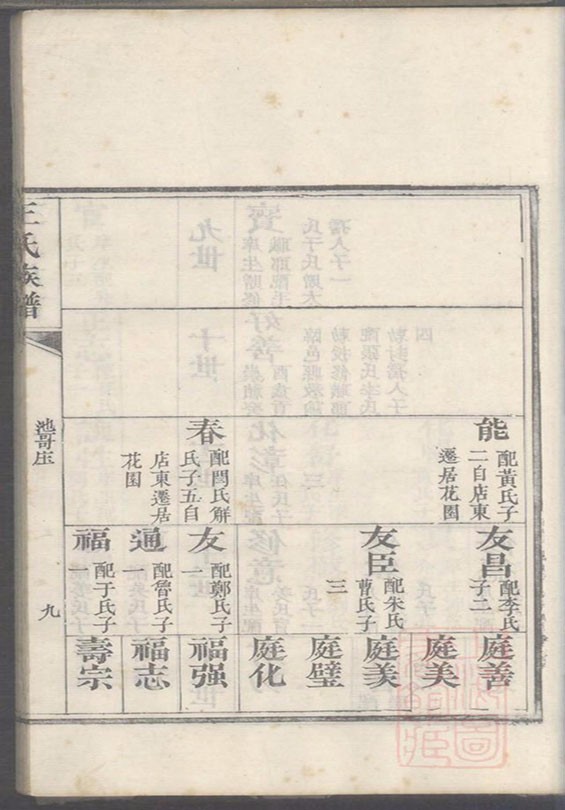 能
配黃氏子
二自店東
遷居花園
春
配閆氏解
氏子五自
店東遷居
花園
友昌
配李氏
子二
友臣
配朱氏
曹氏子
三
友
配鄭氏子
一
通
配魯氏子
一
福
配于氏子
一
庭善
庭美
庭羙
庭璧
庭化
福强
福志
壽宗
王氏族譜
九